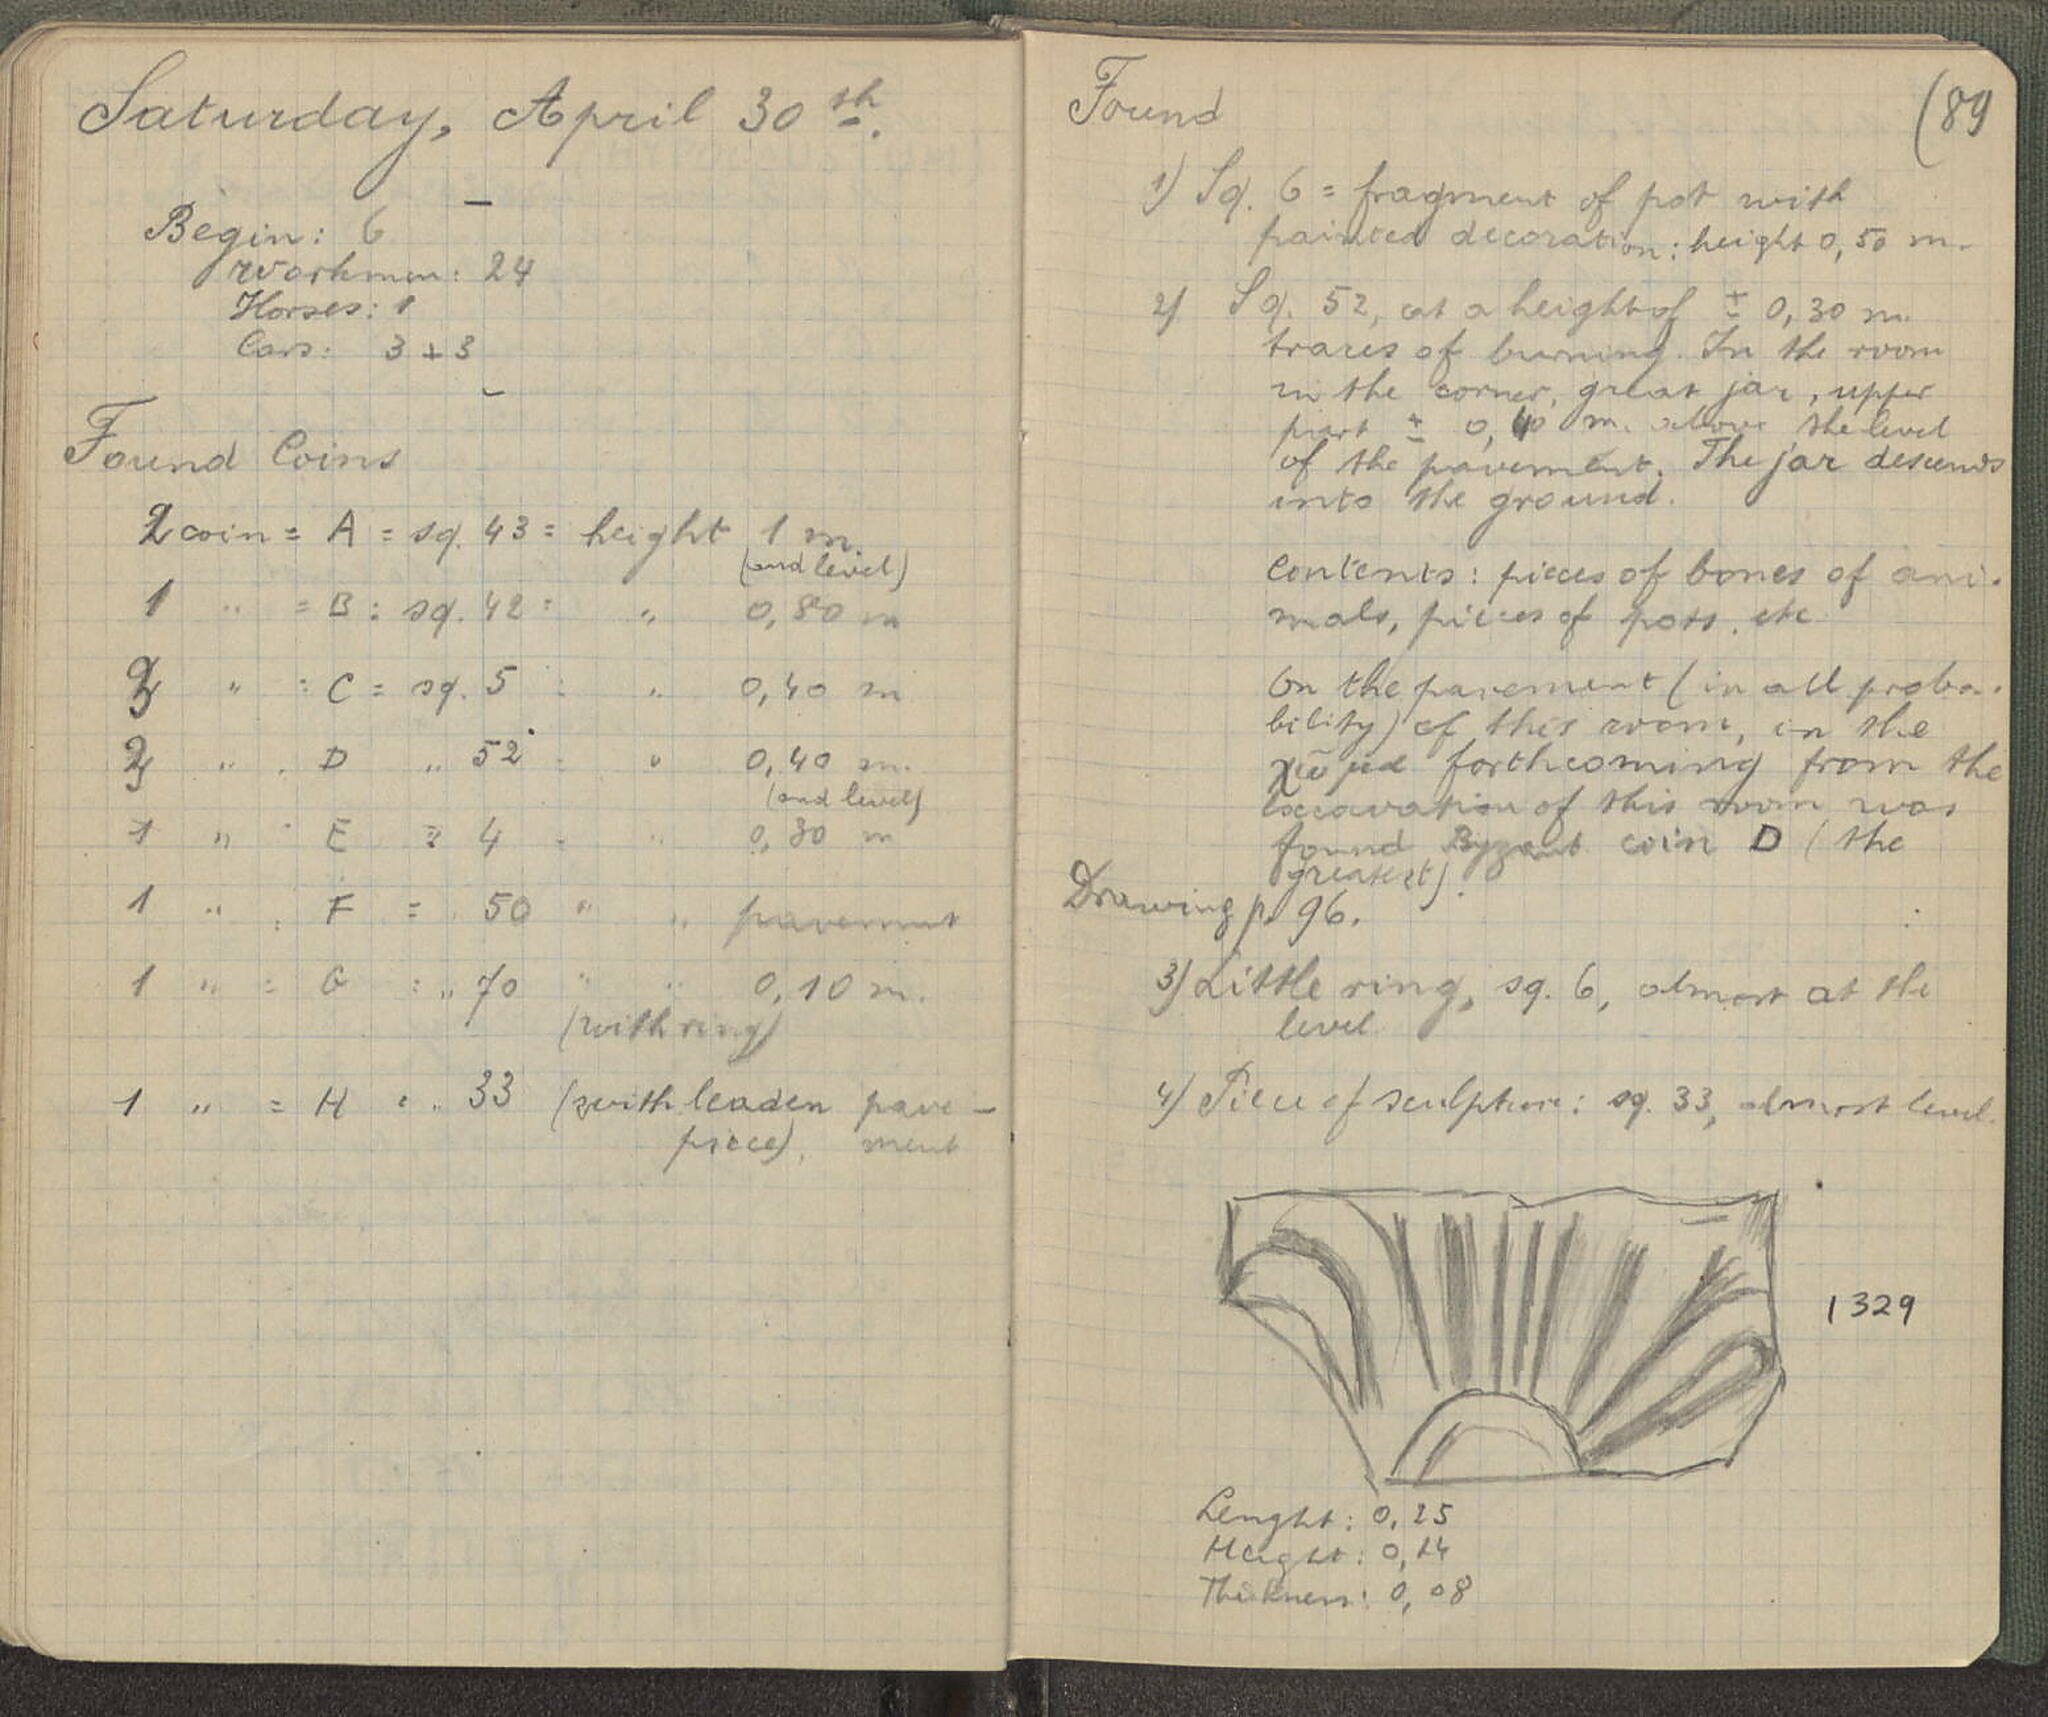 Saturday, April 30th.
Begin: 6
Workmen: 24
Horses: 1
Cars: 3 + 3
Found Coins
2 coin = A = sq. 43 = height 1 m.
(and level)
1 " = B = sq. 42 = " 0,80 m
" = C = sq. 5 = " 0,40 m
" = D " 52 = " 0,40 m.
(and level)
1 " = E = 4 = " 0,30 m
1 " = F = 50 " " pavement
1 " = G = " 70 " " 0,10 m.
(with ring)
1 " = H = " 33 (with leaden pave-
piece), ment
Found
(89
1) Sq. 6 = fragment of pot with
painted decoration: height 0,50 m.
2) Sq. 52, at a height of ± 0,30 m.
traces of burning. In the room
in the corner, great jar, upper
part ± 0,40 m. above the level
of the pavement. The jar descends
into the ground.
Contents: pieces of bones of ani-
mals, pieces of pots, etc
On the pavement (in all proba-
bility) of this room, in the
χῶμα forthcoming from the
excavation of this room was
found Byzant coin D (the
greatest).
Drawing p. 96.
3) Little ring, sq. 6, almost at the
level
4) Piece of sculpture: sq. 33, almost level.
1329
Lenght: 0,25
Height: 0,14
Thickness: 0,08